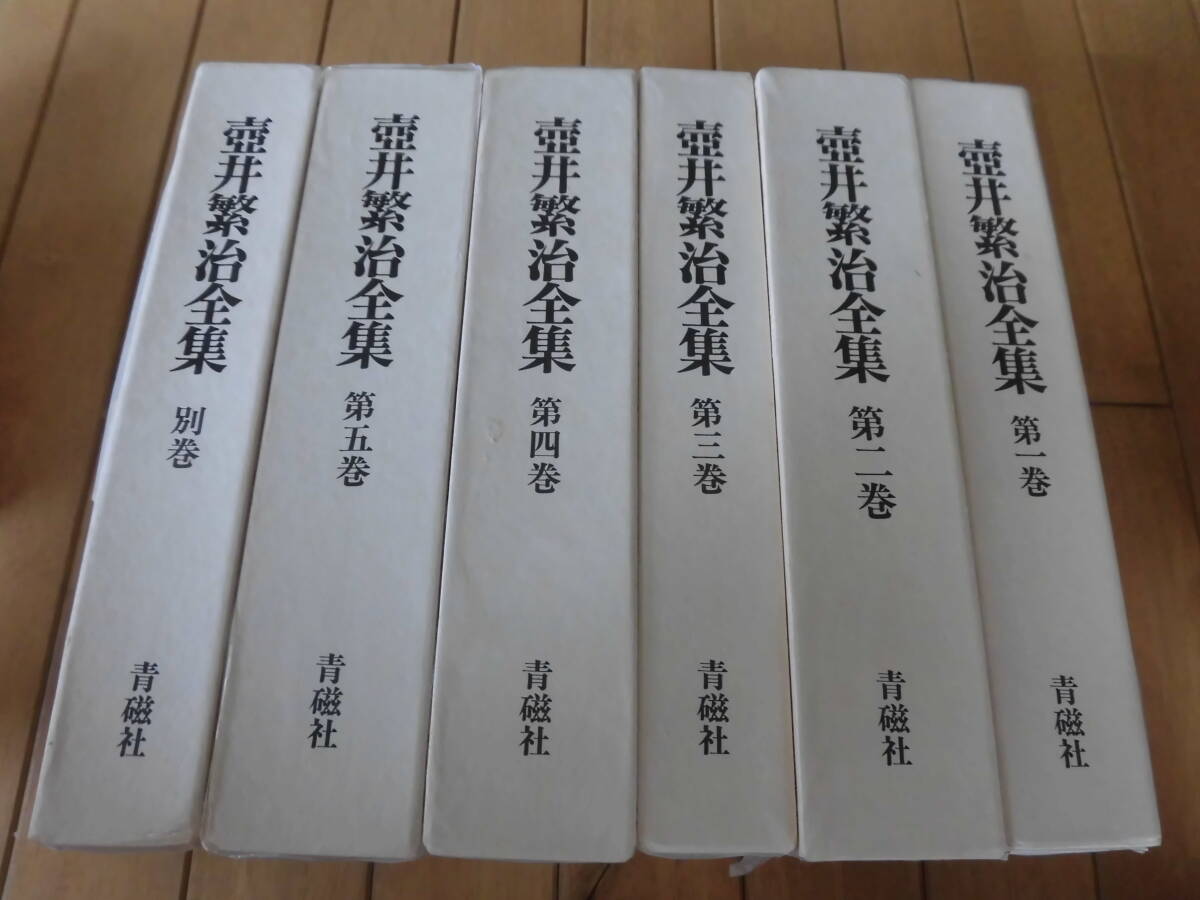 壺井繁治全集 第一巻
青磁社
壺井繁治全集 第二巻
青磁社
壺井繁治全集 第三巻
青磁社
壺井繁治全集 第四巻
青磁社
壺井繁治全集 第五巻
青磁社
壺井繁治全集 別巻
青磁社